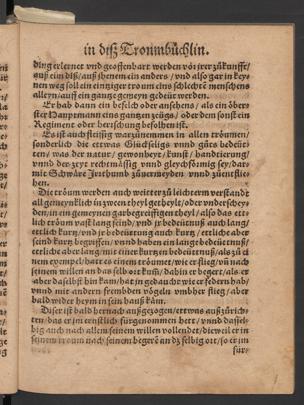 in disz Tronmbüchlin.
ding erlernet vnd geoffenbart werden vor jrer zůkunfft/
auß eim diß/ auß jhenem ein anders / vnd also gar in key=
nen weg soll ein eintziger troum eins schlechte menschens
alleyn/ auff ein gantze gemeyn gedeüt werden.
Er hab dann ein befelch oder ansehens/ als ein öber=
ster Hauptmann eins gantzen zeügs/ oder den sonst ein
Regiment oder herschung befolhen ist.
Es ist auch fleissig warzůnemmen in allen tröumen/
sonderlich die ettwas Glückseligs vnnd gůts bedeüt=
ten/ was der natur/ gewonheyt/ kunst/ handtierung/
vnnd der zeyt rechtmässig vnnd gleychförmig sey/ darmit
Schwäre Jrthumb zůuermeyden vnnd zůentflie=
hen.
Die tröum werden auch weitter zů leichterm verstandt
all gemeynklich in zween theyl getheylt/ oder vnderschey=
den/ in ein gemeynen garbegreiffigen theyl / also das ett=
lich tröum vast lang seind/ vnd jr bedeütnuß auch lang/
ettlich kurtz/ vnd jr bedeütung auch kurtz/ ettliche aber
seind kurtz begriffen/ vnnd haben ein lange bedeüttnuß/
ettliche aber lang/ mit einer kurtzen bedeüttnuß/ als zů ei
nem exempel/ hatt es einem tröumet/ wie er flieg/ vn nach
seinem willen an das selb ort kum/ dahin er begert/ als er
aber daselbst hin kam/ hat jn gedaucht wie er federn hab/
vnnd mit andern frembden vögeln vmbher flieg/ aber
bald wider heym in sein hauß käm.
Diser ist bald hernach außgezogen/ ettwas außzůrich=
ten/ das er jm ernstlich fürgenommen hett/ vnnd dassel=
big auch nach allem seinem willen vollendet/ dieweil er in
seinem troum nach seinem begeren an dz selbig ort/ so er im
für=